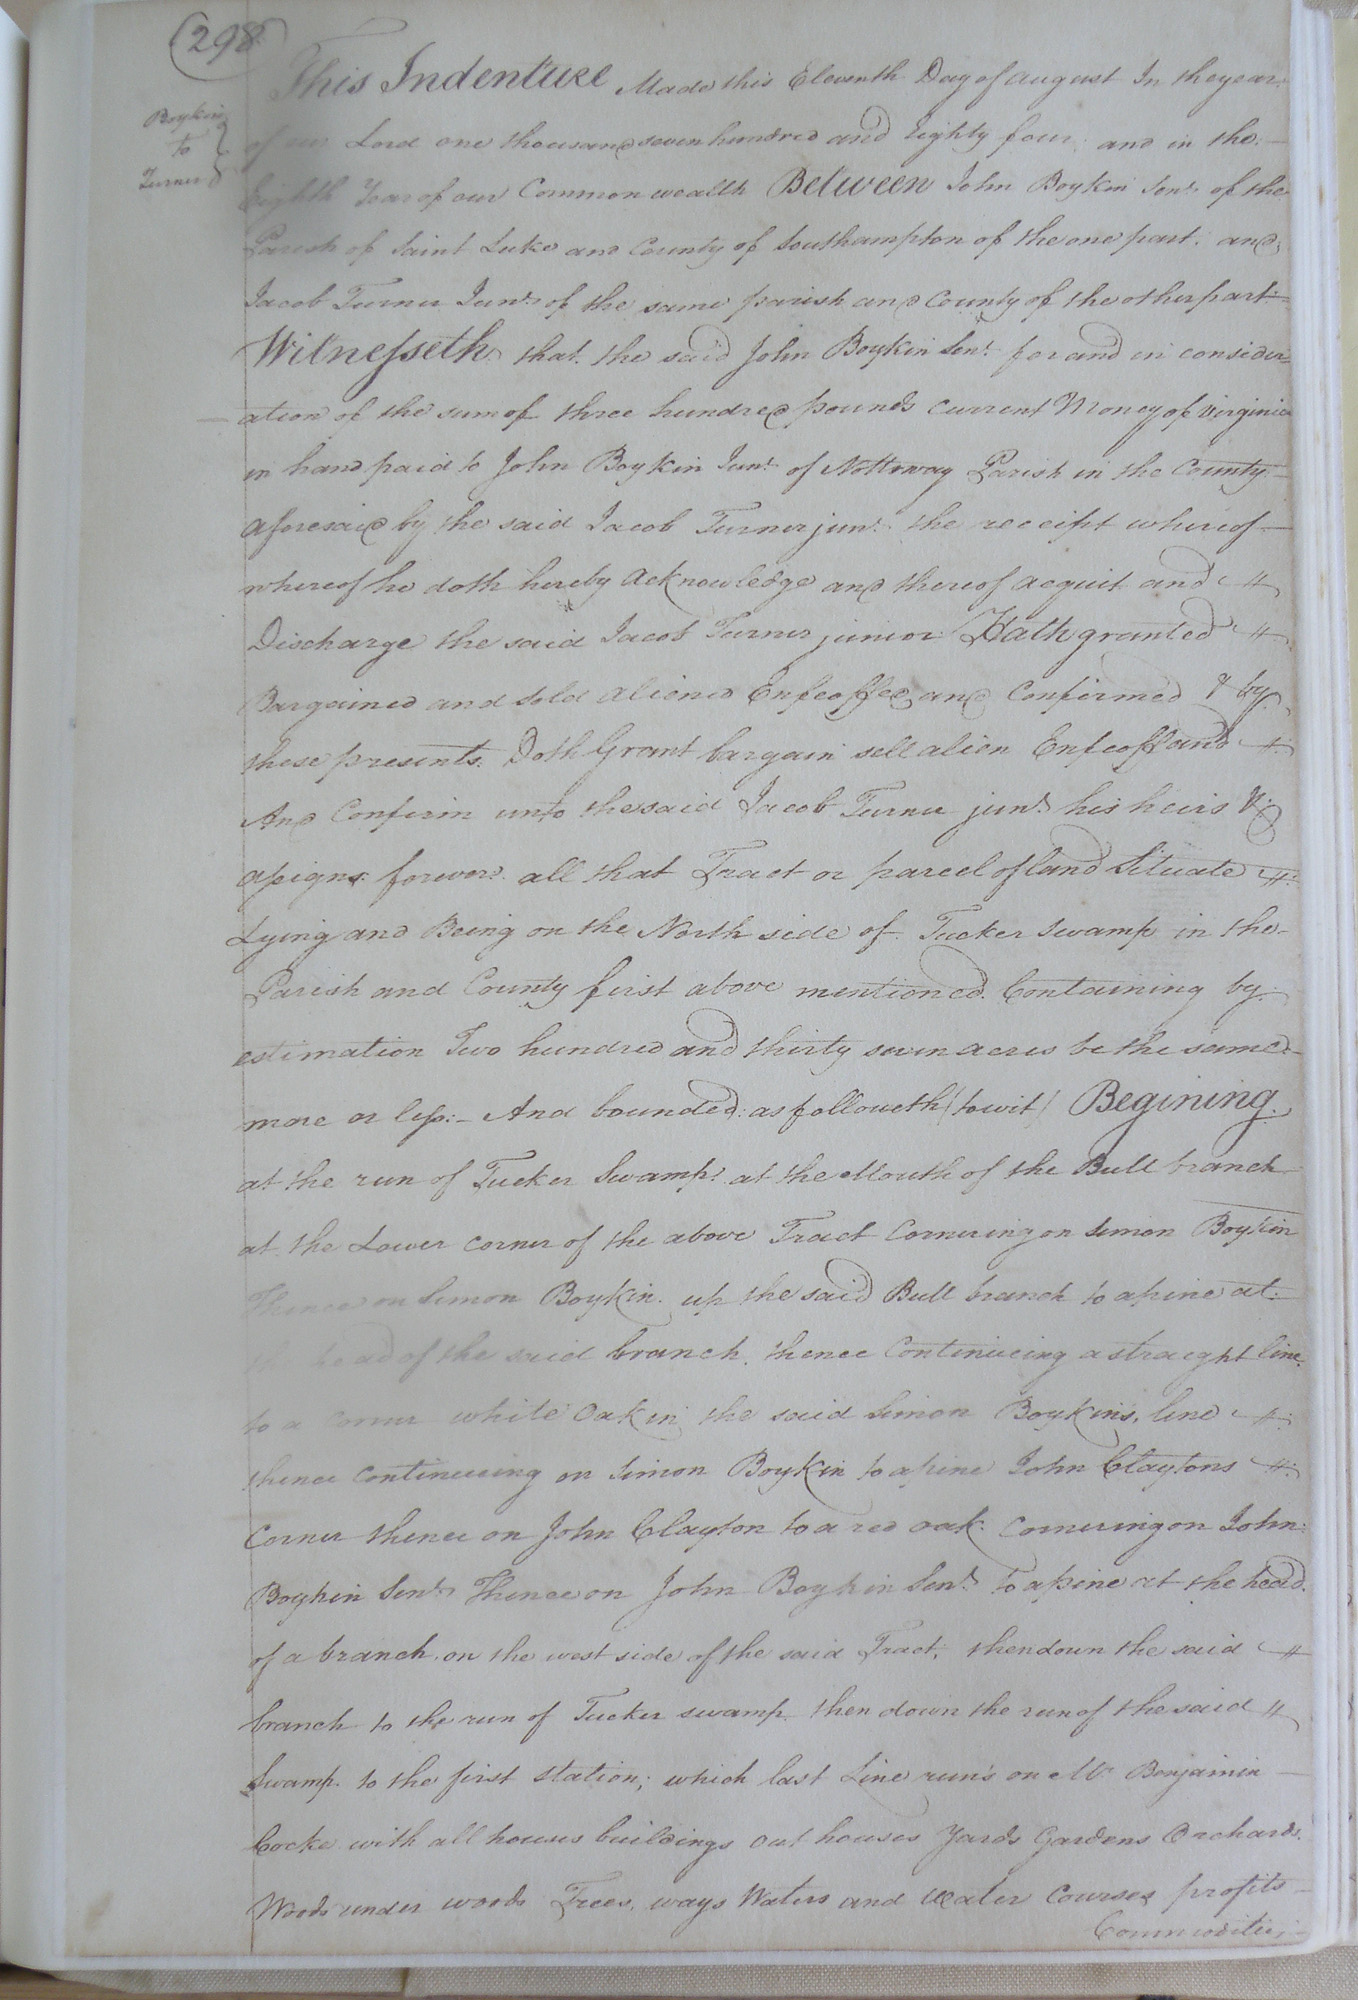 298
Boykin
to
Turner
This Indenture Made this Eleventh Day of August In the year
of our Lord one thousand seven hundred and Eighty four and in the
Eighth Year of our Common wealth Between John Boykin Senr. of the
Parish of Saint Luke and County of Southampton of the one part. and
Jacob Turner Junr. of the same parish and County of the other part
Witnesseth that the said John Boykin Senr. for and in consider=
ation of the sum of three hundred pounds Current Money of Virginia
in hand paid to John Boykin Junr. of Nottoway Parish in the County
aforesaid by the said Jacob Turner junr. the receipt whereof
whereof he doth hereby acknowledge and thereof acquit and
Discharge the said Jacob Turner junior Hath granted
Bargained and sold aliened Enfeoffed and Confirmed & by
these presents. Doth Grant bargain sell alien Enfeoff and
And Confirm unto the said Jacob Turner junr. his heirs &
assigns forever. all that Tract or parcel of land Situate
Lying and Being on the North side of Tucker Swamp in the
Parish and County first above mentioned. Containing by
estimation Two hundred and thirty seven acres be the same
more or less:- And bounded: as followeth (to wit) Begining.
at the run of Tucker Swamp. at the Mouth of the Bull branch
at the Lower corner of the above Tract Cornering on Simon Boykin
Thence on Simon Boykin. up the said Bull branch to a pine at
the head of the said branch. thence Continueing a straight line.
to a Corner white Oak in the said Simon Boykins, line
thence Continueing on Simon Boykin to a pine John Claytons
Corner thence on John Clayton to a red oak. Cornering on John
Boykin Senr. Thence on John Boykin Senr. to a pine at the head.
of a branch. on the west side of the said Tract; then down the said
branch to the run of Tucker swamp then down the run of the said
Swamp. to the first station; which last Line runs on Mr. Benjamin
Cocke with all houses buildings out houses Yards Gardens Orchards.
Woods under woods Trees, ways Waters and Water Courses profits
Commodities